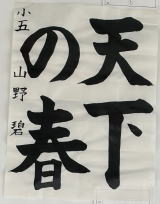 天下
の春
小五 山野 碧